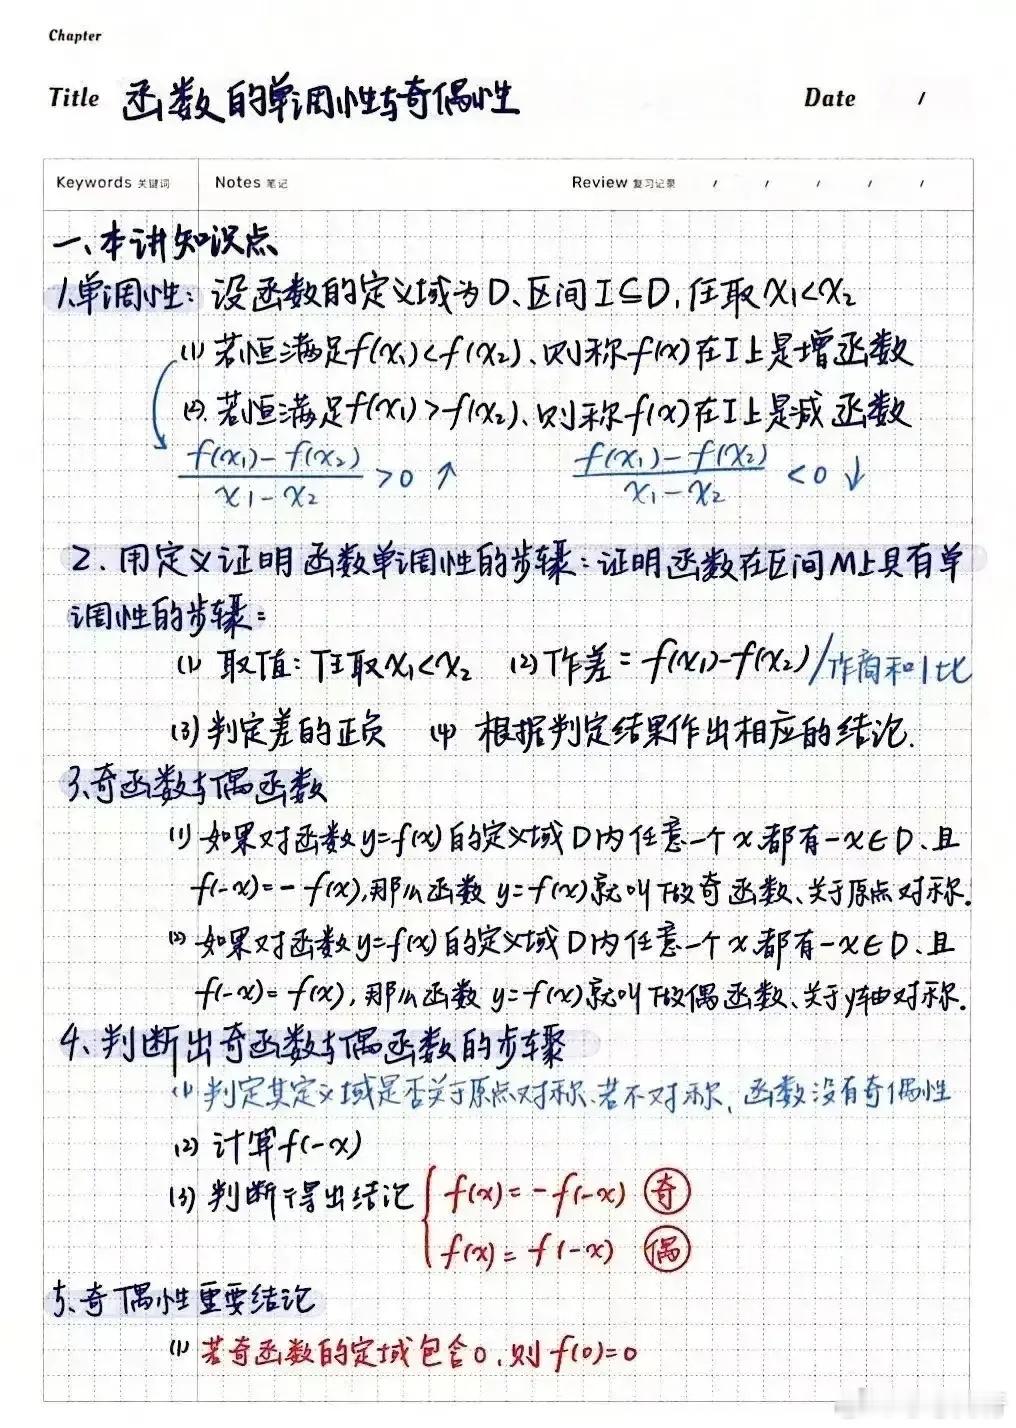 Chapter
Title 函数的单调性与奇偶性 Date /
Keywords 关键词 Notes 笔记 Review 复习记录 / / / / /
一、本讲知识点
1.单调性：设函数的定义域为D、区间I⊆D，任取x₁<x₂
(1) 若恒满足f(x₁)<f(x₂)、则称f(x)在I上是增函数
(2). 若恒满足f(x₁)>f(x₂)、则称f(x)在I上是减函数
f(x₁)-f(x₂)/x₁-x₂ >0 ↑ f(x₁)-f(x₂)/x₁-x₂ <0 ↓
2. 用定义证明函数单调性的步骤：证明函数在区间M上具有单
调性的步骤：
(1) 取值：任取x₁<x₂ (2) 作差：f(x₁)-f(x₂)/作商和1比
(3) 判定差的正负 (4) 根据判定结果作出相应的结论.
3.奇函数与偶函数
(1) 如果对函数y=f(x)的定义域D内任意一个x都有-x∈D、且
f(-x)=-f(x),那么函数y=f(x)就叫做奇函数、关于原点对称.
(2) 如果对函数y=f(x)的定义域D内任意一个x都有-x∈D、且
f(-x)=f(x),那么函数y=f(x)就叫做偶函数、关于y轴对称.
4、判断出奇函数与偶函数的步骤
(1) 判定其定义域是否关于原点对称、若不对称、函数没有奇偶性
(2) 计算f(-x)
(3) 判断得出结论 { f(x)=-f(-x) 奇
f(x)=f(-x) 偶
5、奇偶性重要结论
(1) 若奇函数的定域包含0、则f(0)=0